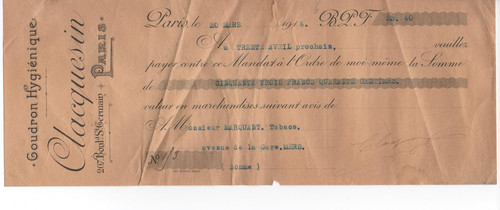 Goudron Hygiénique
Clacquesin
207, Boulᵈ. Sᵗ Germain PARIS
Paris, le 20 MARS 191 B.P.F. 53. 40
A
à TRENTE AVRIL prochain, veuillez
payer contre ce Mandat à l'Ordre de moi-même la Somme
de CINQUANTE TROIS FRANCS QUARANTE CENTIMES,
valeur en marchandises suivant avis de
A Monsieur MARQUANT, Tabacs,
avenue de la Gare, MERS.
No
( Somme )